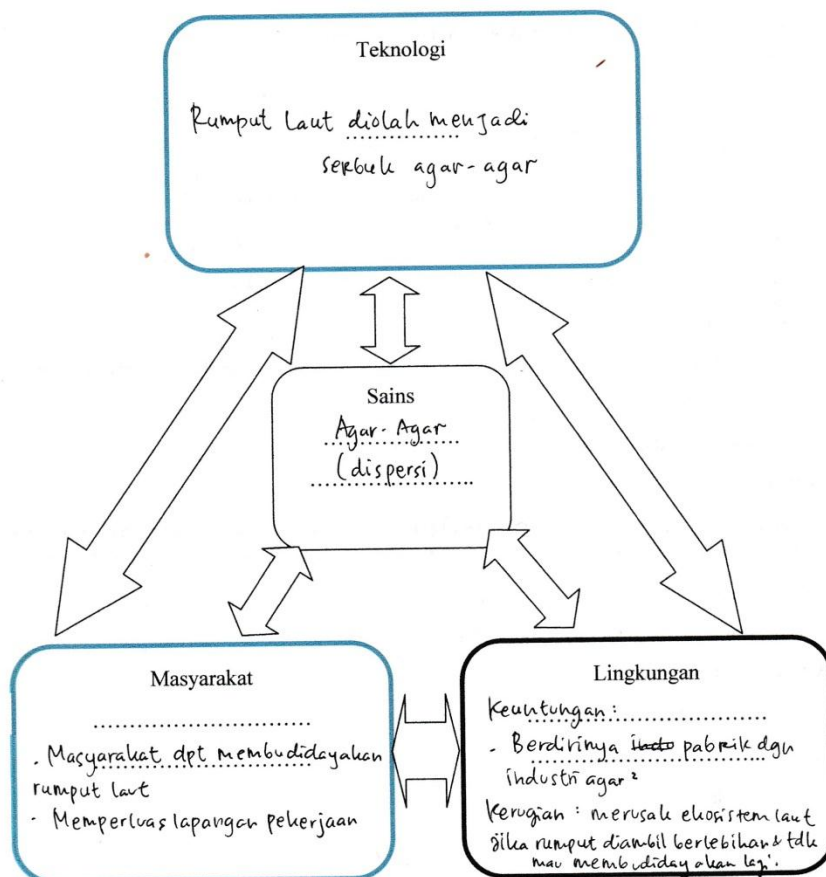 Teknologi
Rumput Laut diolah menjadi
serbuk agar-agar
Sains
Agar-Agar
(dispersi)
Masyarakat
- Masyarakat dpt membudidayakan
rumput laut
- Memperluas lapangan pekerjaan
Lingkungan
Keuntungan :
- Berdirinya pabrik dgn
industri agar²
Kerugian : merusak ekosistem laut
jika rumput diambil berlebihan & tdk
mau membudidayakan lagi.